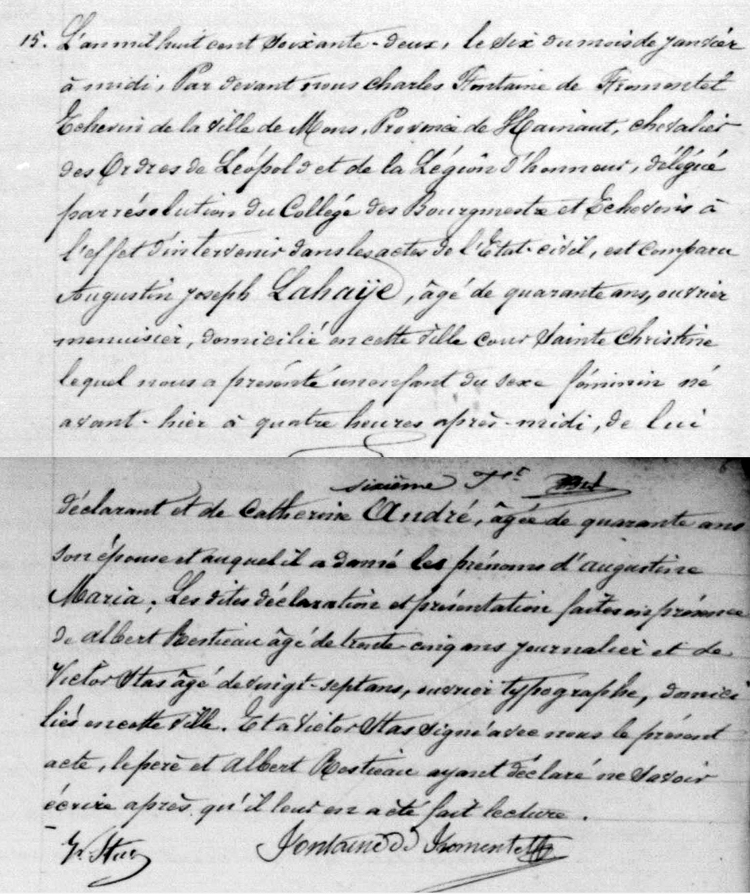 15. L'an mil huit cent soixante-deux, le six du mois de janvier
à midi, Par devant nous Charles Fontaine de Fromentel
Echevin de la ville de Mons, Province de Hainaut, chevalier
des Ordres de Léopold et de la Légion d'honneur, délégué
par résolution du Collége des Bourgmestre et Echevins à
l'effet d'intervenir dans les actes de l'Etat-civil, est comparu
Augustin Joseph Lahaÿe, âgé de quarante ans, ouvrier
menuisier, domicilié en cette ville cour Sainte Christine
lequel nous a présenté un enfant du sexe féminin né
avant-hier à quatre heures après-midi, de lui
sixième
déclarant et de Catherine André, âgée de quarante ans
son épouse et auquel il a donné les prénoms d'Augustine
Maria; Les dites déclaration et présentation faites en présence
de Albert Restieau âgé de trente-cinq ans journalier et de
Victor Stas âgé de vingt-sept ans, ouvrier typographe, domici
liés en cette ville. Et a Victor Stas signé avec nous le présent
acte, le père et Albert Restieau ayant déclaré ne savoir
écrire après qu'il leur en a été fait lecture.
V. Stas Fontaine de Fromentel